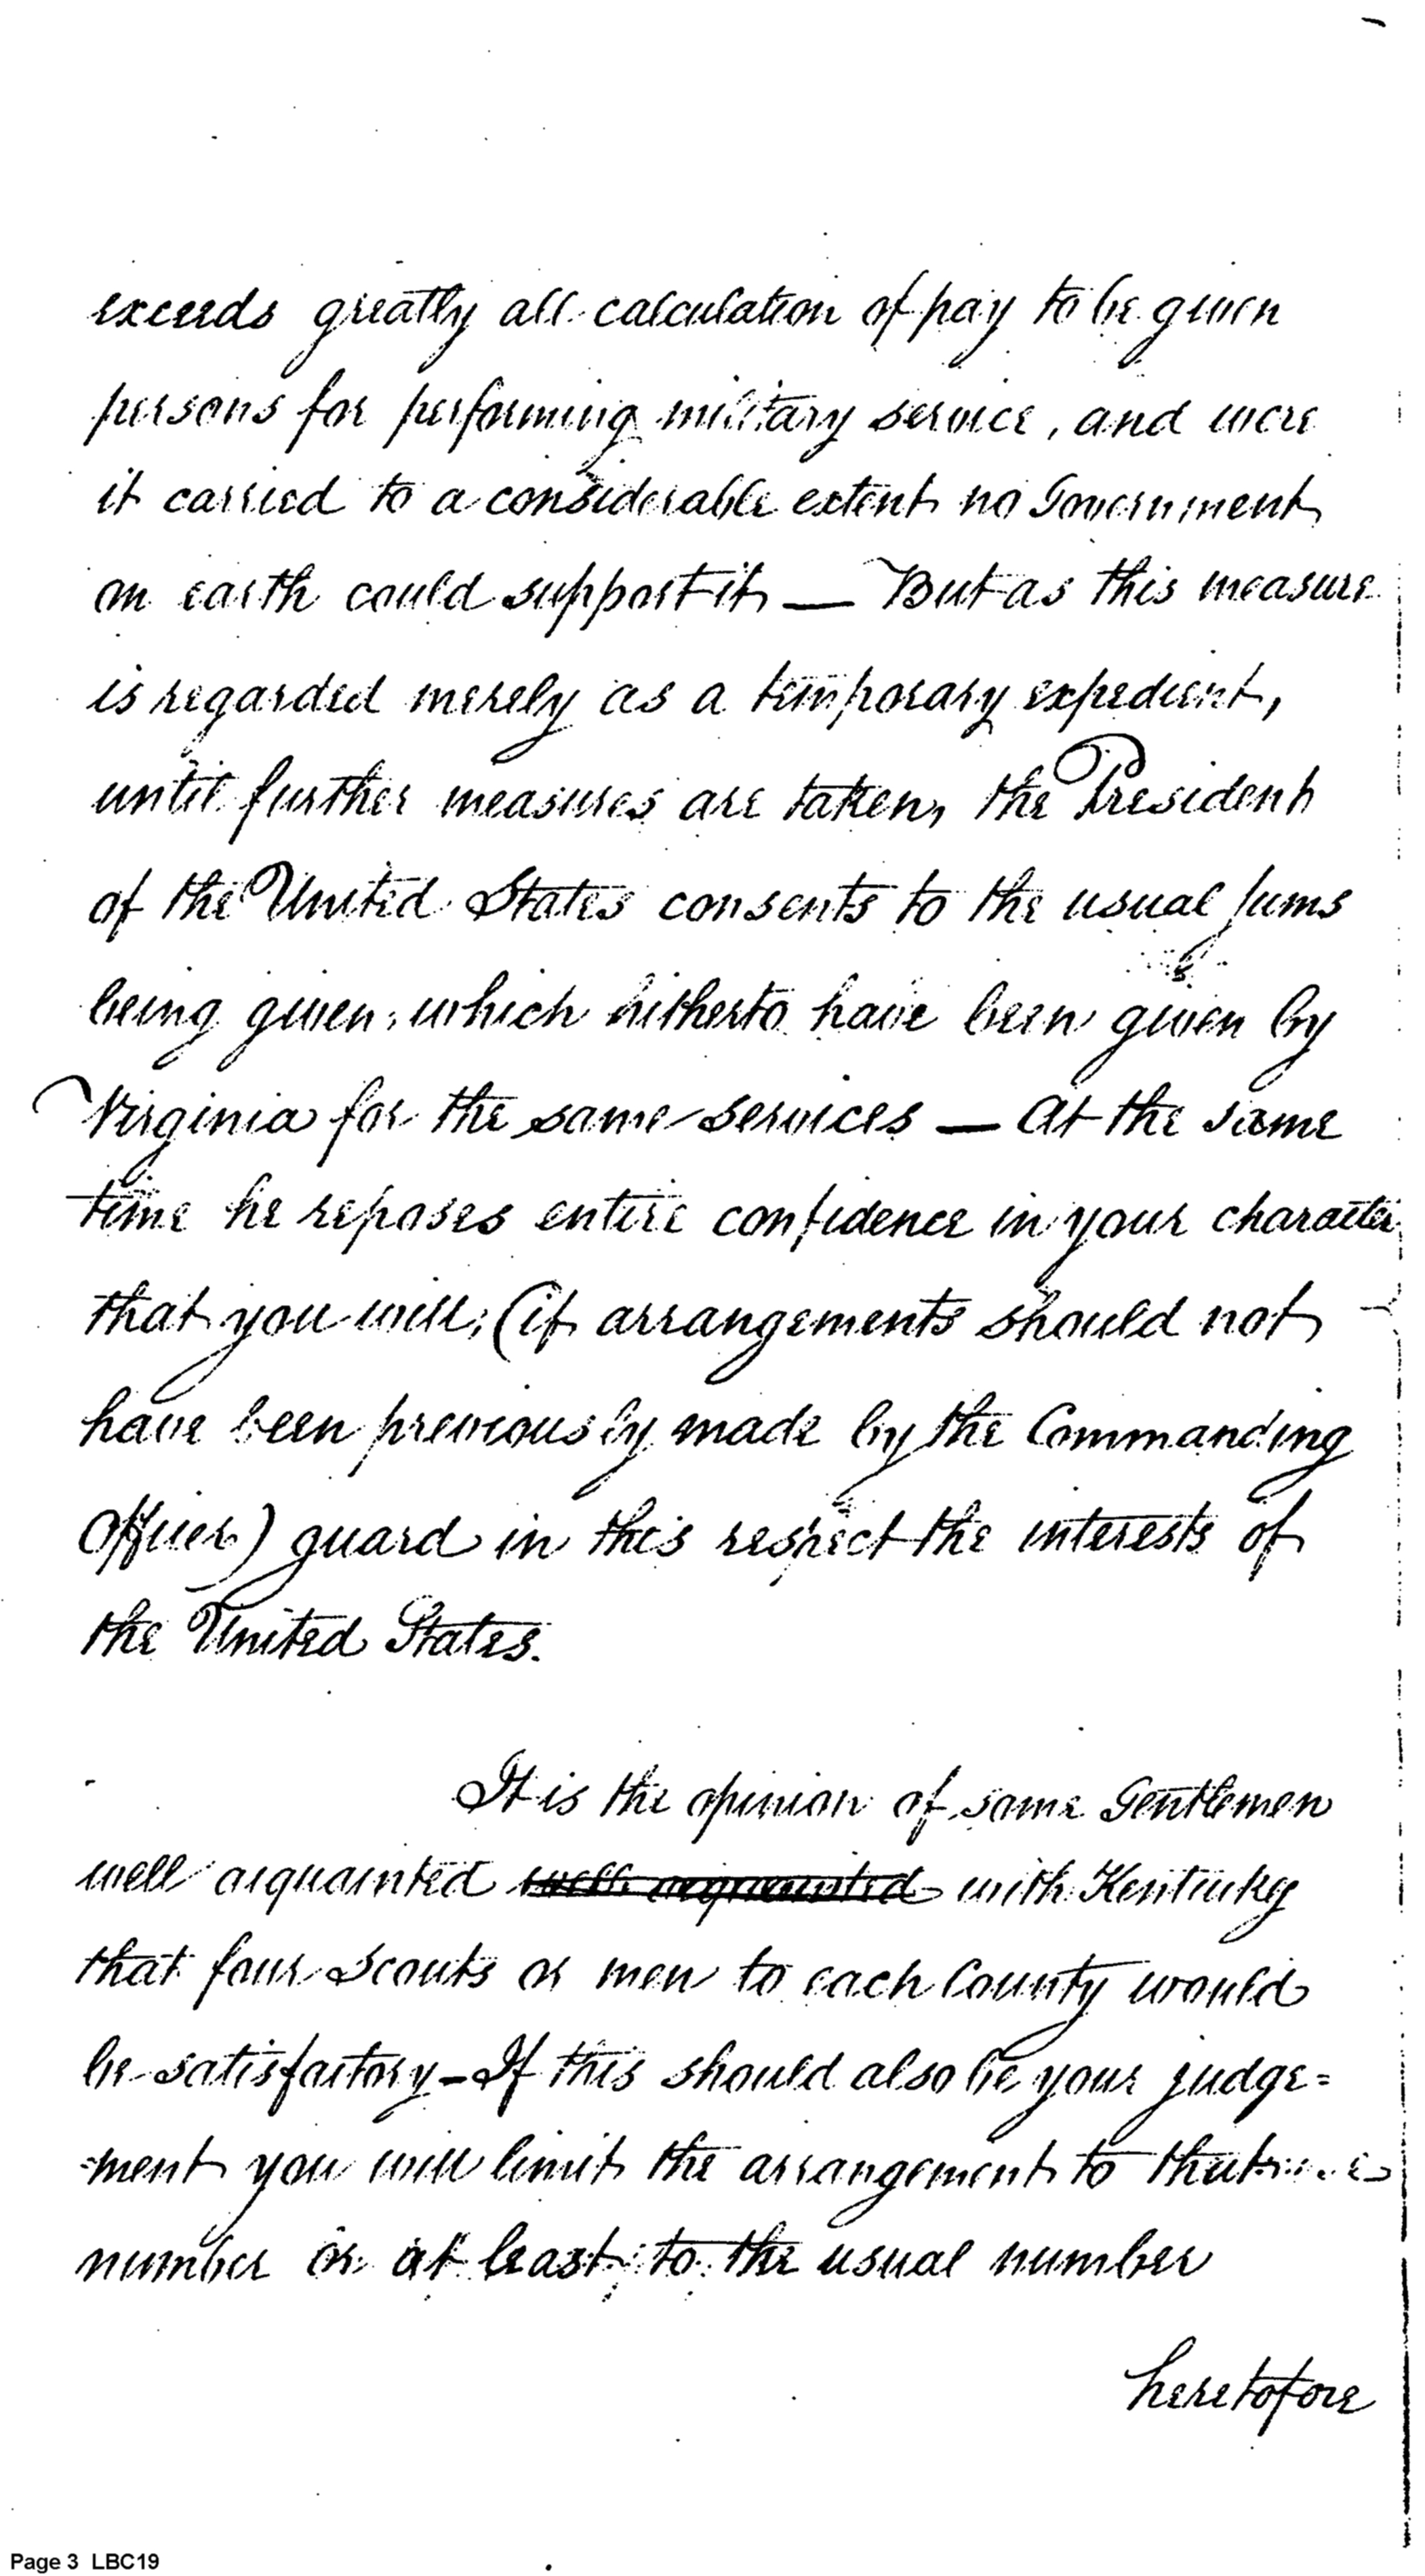 exceeds greatly all calculation of pay to be given
persons for performing military service, and were
it carried to a considerable extent no Government
on earth could support it — But as this measure
is regarded merely as a temporary expedient,
until further measures are taken, the President
of the United States consents to the usual sums
being given, which hitherto have been given by
Virginia for the same services — At the same
time he reposes entire confidence in your character
that you will, (if arrangements should not
have been previously made by the Commanding
Officer) guard in this respect the interests of
the United States.
It is the opinion of some Gentlemen
well acquainted well acquainted with Kentucky
that four Scouts or men to each County would
be satisfactory - If this should also be your judge=
=ment you will limit the arrangement to that
number or at least to the usual number
heretofore
Page 3 LBC19